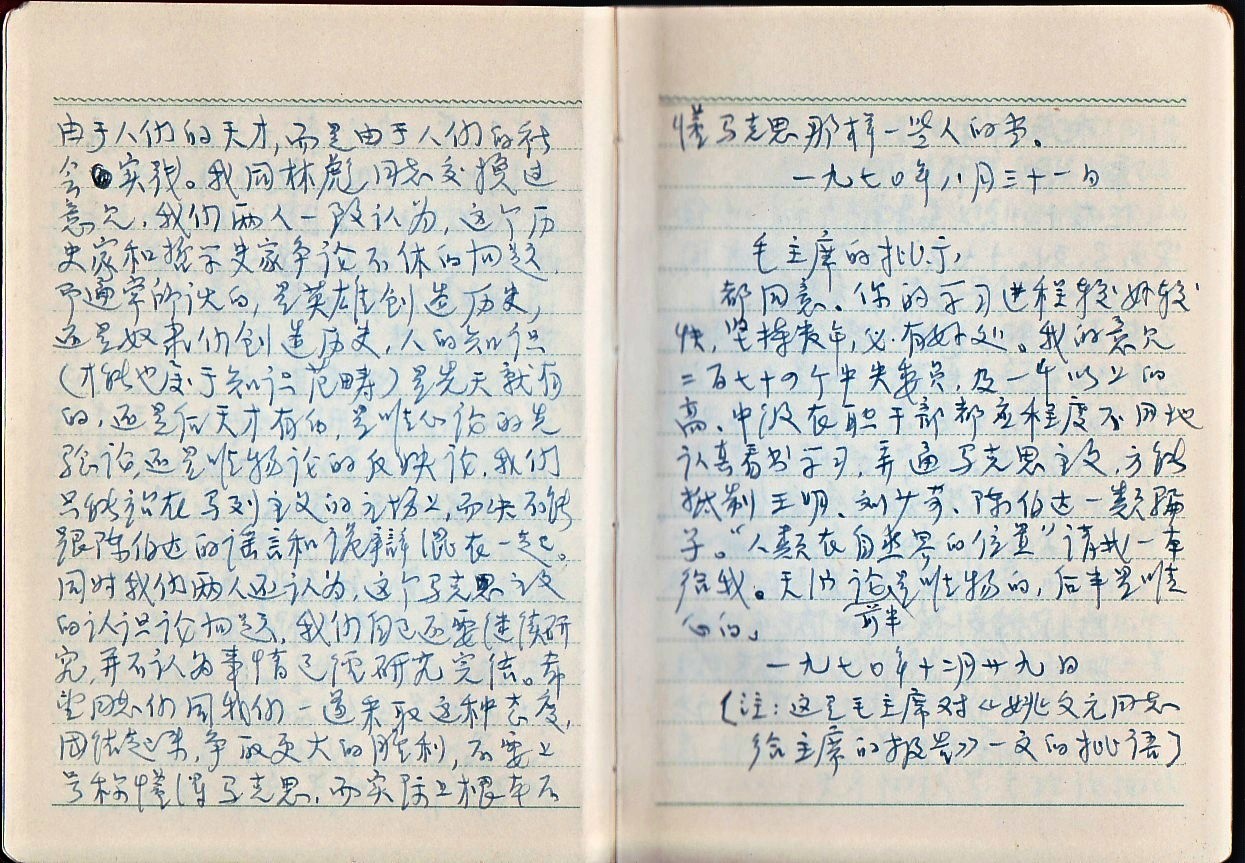 由于人们的天才,而是由于人们的社
会实践。我同林彪同志交换过
意见,我们两人一致认为,这个历
史家和哲学史家争论不休的问题,
即通常所说的,是英雄创造历史,
还是奴隶们创造历史,人的知识
(才能也属于知识范畴)是先天就有
的,还是后天才有的,是唯心论的先
验论,还是唯物论的反映论,我们
只能站在马列主义的立场上,而决不能
跟陈伯达的谣言和诡辩混在一起。
同时我们两人还认为,这个马克思主义
的认识论问题,我们自己还要继续研
究,并不认为事情已经研究完结。希
望同志们同我们一道采取这种态度,
团结起来,争取更大的胜利,不要上
号称懂得马克思,而实际上根本不
懂马克思那样一些人的当。
一九七〇年八月三十一日
毛主席的批示,
都同意。你的学习进程较好较
快,坚持数年,必有好处。我的意见
二百七十四个中央委员,及一千以上的
高、中级在职干部都应程度不同地
认真看书学习,弄通马克思主义,方能
抵制王明、刘少奇、陈伯达一类骗
子。“人类在自然界的位置”请找一本
给我。天演论是唯物的,后半是唯
前半
心的。
一九七〇年十二月廿九日
(注:这是毛主席对《姚文元同志
给主席的报告》一文的批语)